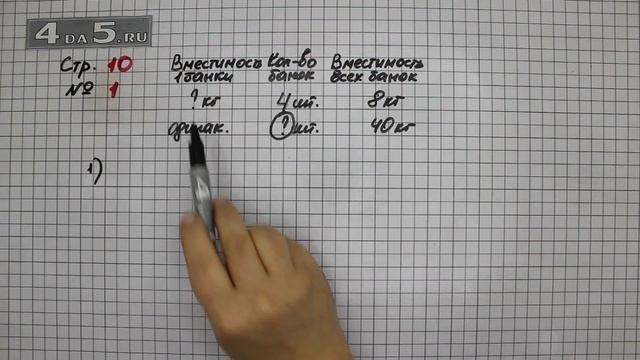 4 DA 5.RU
Стр. 10
№ 1
Вместимость Кол-во Вместимость
1 банки банок всех банок
? кг 4 шт. 8 кг
одинак. ? шт. 40 кг
1)